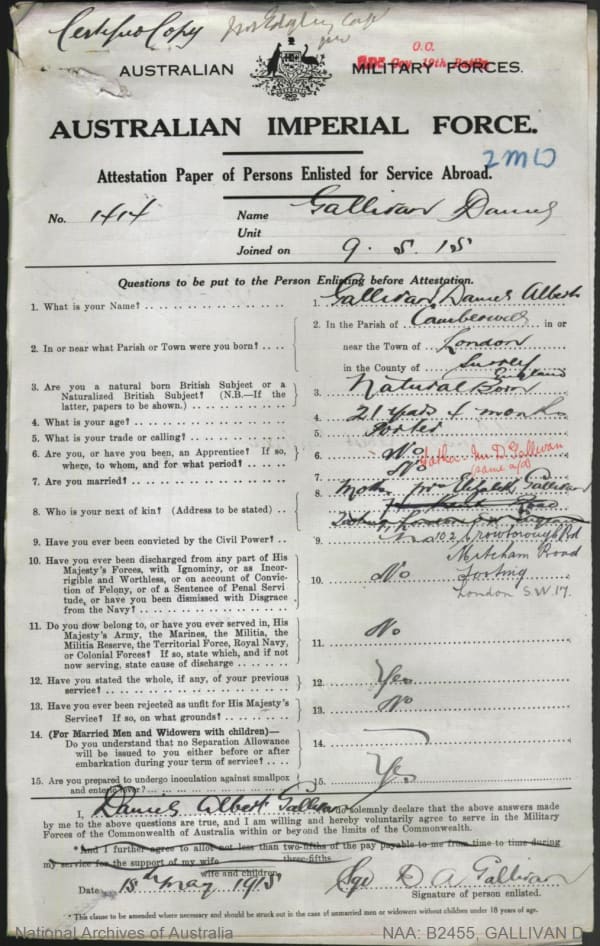 Certified Copy
O.O.
19th Battn
AUSTRALIAN MILITARY FORCES.
AUSTRALIAN IMPERIAL FORCE.
2 MD
Attestation Paper of Persons Enlisted for Service Abroad.
No. 1414 Name Gallivan Daniel
Unit
Joined on 9.5.15
Questions to be put to the Person Enlisting before Attestation.
1. What is your Name? 1. Gallivan Daniel Albert
2. In or near what Parish or Town were you born? 2. In the Parish of Camberwell in or
near the Town of London
in the County of Surrey England
3. Are you a natural born British Subject or a
Naturalized British Subject? (N.B.—If the
latter, papers to be shown.) 3. Natural Born
4. What is your age? 4. 21 years 4 months
5. What is your trade or calling? 5. Porter
6. Are you, or have you been, an Apprentice? If so,
where, to whom, and for what period? 6. No
Father Mr D. Gallivan
(same a/d)
7. Are you married? 7. No
8. Who is your next of kin? (Address to be stated) 8. Mother Mrs Elizabeth Gallivan
Road
Tooting London S.W. England
9. Have you ever been convicted by the Civil Power? 9. No
102 Crowborough Rd
Mitcham Road
Tooting
London S.W. 17.
10. Have you ever been discharged from any part of His
Majesty's Forces, with Ignominy, or as Incor-
rigible and Worthless, or on account of Convic-
tion of Felony, or of a Sentence of Penal Servi-
tude, or have you been dismissed with Disgrace
from the Navy? 10. No
11. Do you now belong to, or have you ever served in, His
Majesty's Army, the Marines, the Militia, the
Militia Reserve, the Territorial Force, Royal Navy,
or Colonial Forces? If so, state which, and if not
now serving, state cause of discharge 11. No
12. Have you stated the whole, if any, of your previous
service? 12. Yes
13. Have you ever been rejected as unfit for His Majesty's
Service? If so, on what grounds? 13. No
14. (For Married Men and Widowers with children)—
Do you understand that no Separation Allowance
will be issued to you either before or after
embarkation during your term of service? 14.
15. Are you prepared to undergo inoculation against smallpox
and enteric fever? 15. Yes
I, Daniel Albert Gallivan do solemnly declare that the above answers made
by me to the above questions are true, and I am willing and hereby voluntarily agree to serve in the Military
Forces of the Commonwealth of Australia within or beyond the limits of the Commonwealth.
*And I further agree to allot not less than two-fifths of the pay payable to me from time to time during
three-fifths
my service for the support of my wife
wife and children.
Date 15th May 1915 Sgd D A Gallivan
Signature of person enlisted.
* This clause to be amended where necessary and should be struck out in the case of unmarried men or widowers without children under 18 years of age.
National Archives of Australia NAA: B2455, GALLIVAN D